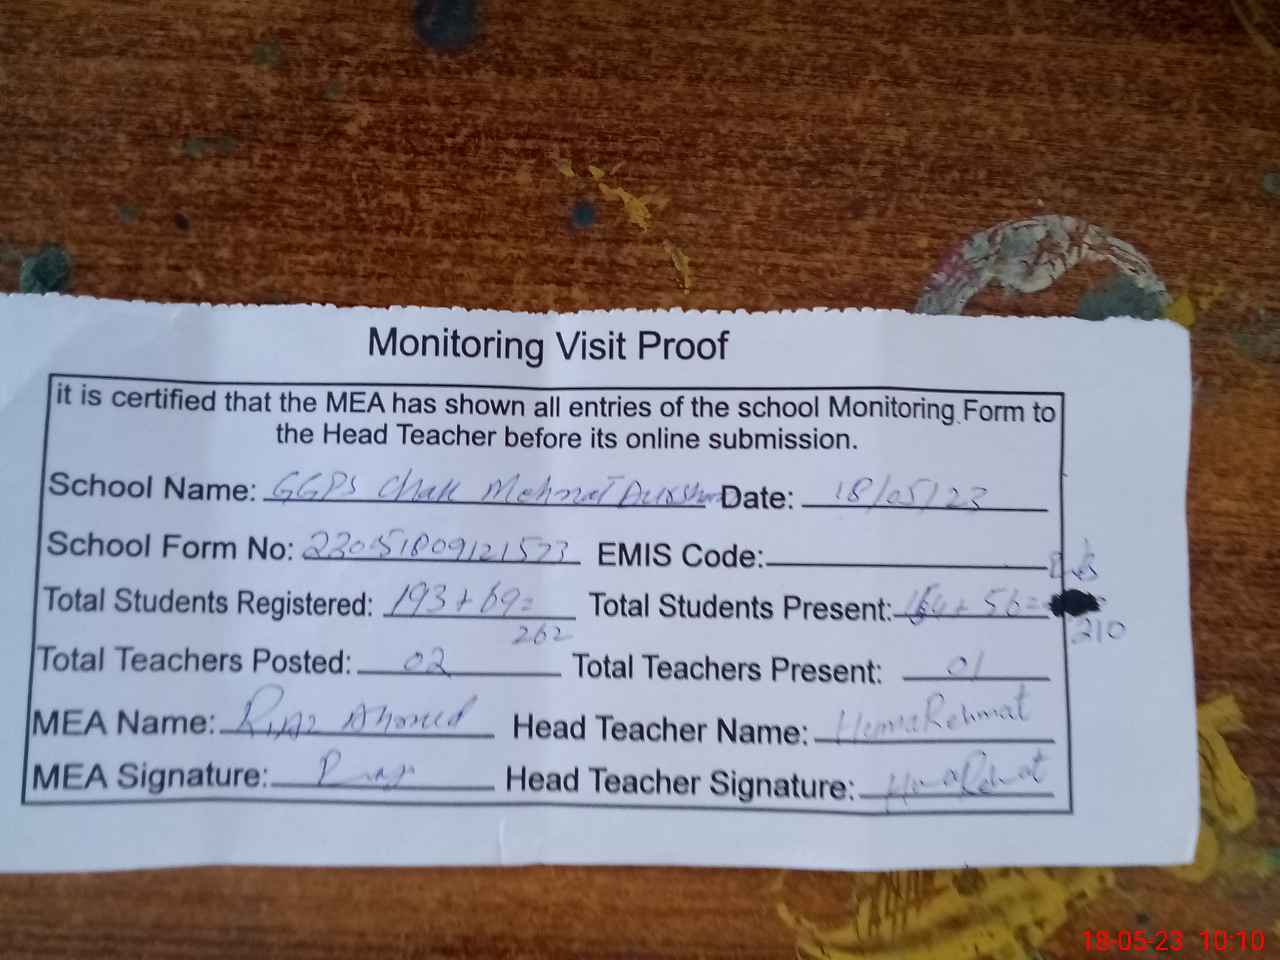 Monitoring Visit Proof
it is certified that the MEA has shown all entries of the school Monitoring Form to
the Head Teacher before its online submission.
School Name: GGPS Chak Date: 18/05/23
School Form No: 23051809121573 EMIS Code:
Total Students Registered: 193+69= Total Students Present: + 56=
262 210
Total Teachers Posted: 02 Total Teachers Present: 01
MEA Name: Riaz Ahmed Head Teacher Name: Huma Rehmat
MEA Signature: Riaz Head Teacher Signature: Huma Rehmat
18-05-23 10:10